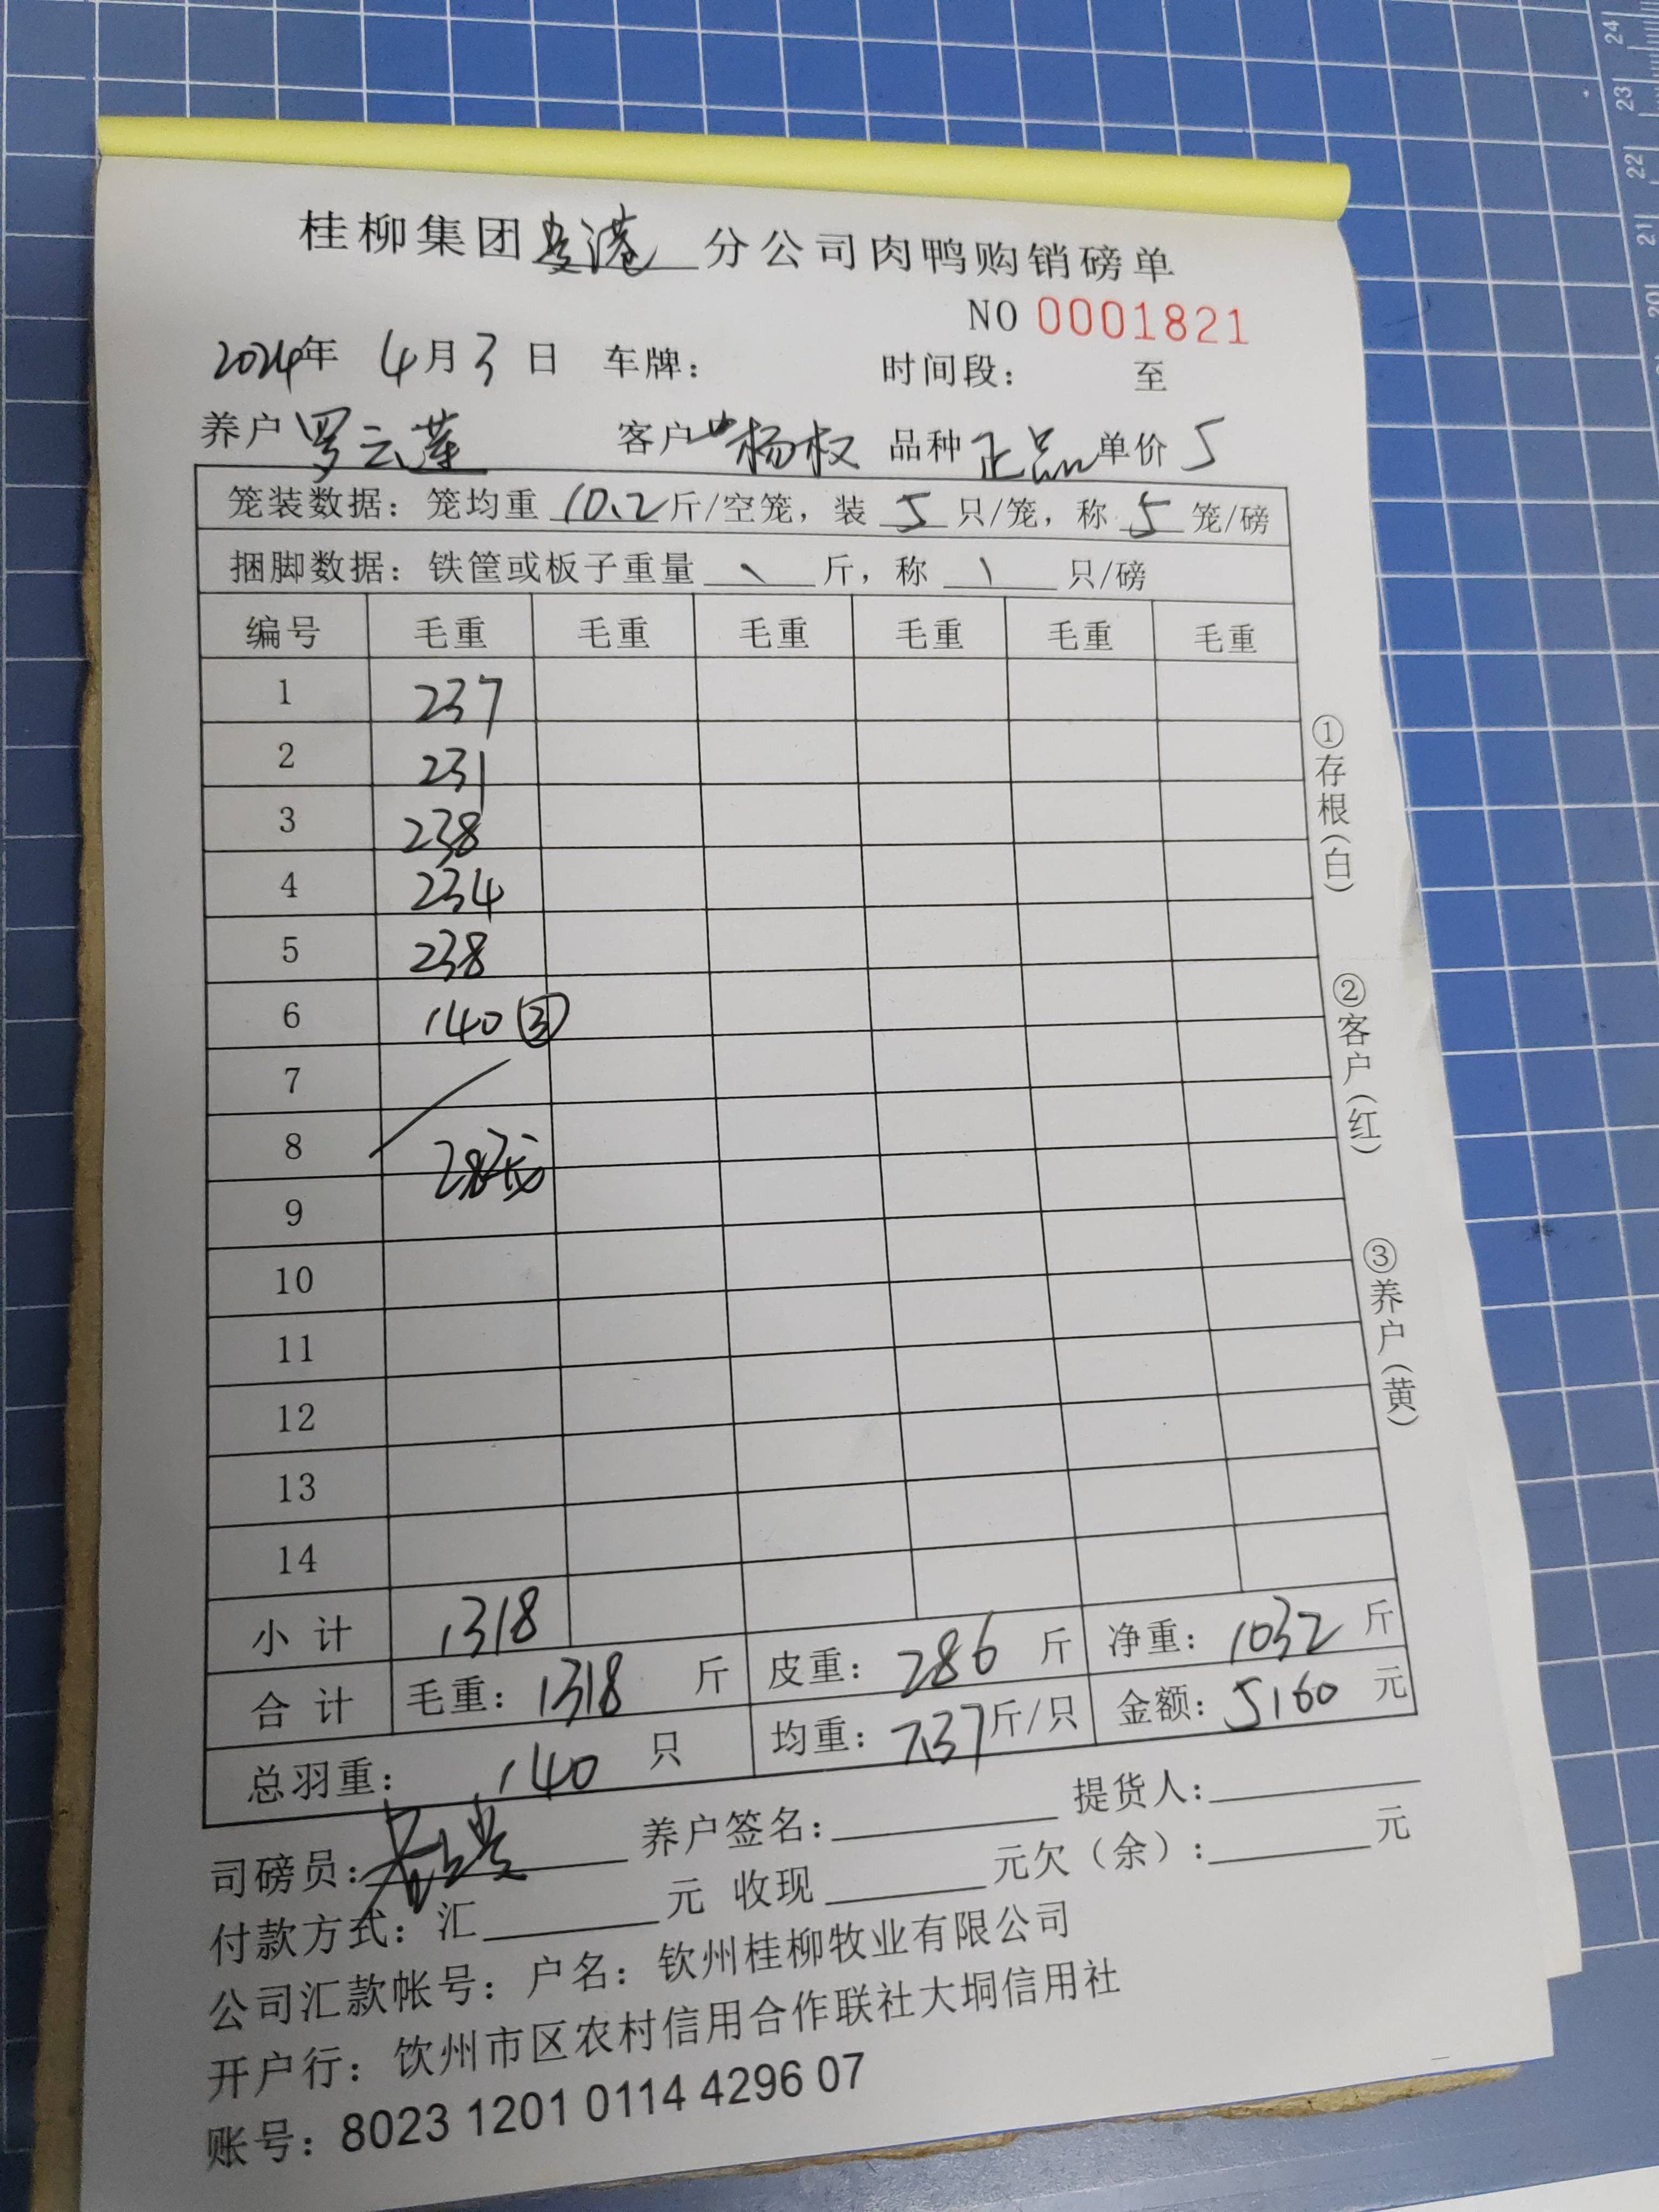 桂柳集团贵港分公司肉鸭购销磅单
NO 0001821
2024年 4月3日 车牌: 时间段: 至
养户 罗云莲 客户 杨权 品种 正品 单价 5
笼装数据: 笼均重 10.2 斤/空笼, 装 5 只/笼, 称 5 笼/磅
捆脚数据: 铁筐或板子重量 \ 斤, 称 \ 只/磅
编号 毛重 毛重 毛重 毛重 毛重 毛重
1 237
2 231
3 238
4 234
5 238
6 140 ③
7
8 28
9
10
11
12
13
14
小计 1318
合计 毛重: 1318 斤 皮重: 286 斤 净重: 1032 斤
总羽重: 140 只 均重: 7.37 斤/只 金额: 5160 元
司磅员: 养户签名: 提货人:
付款方式: 汇 元 收现 元欠(余): 元
公司汇款帐号: 户名: 钦州桂柳牧业有限公司
开户行: 钦州市区农村信用合作联社大垌信用社
账号: 8023 1201 0114 4296 07
①存根(白)
②客户(红)
③养户(黄)
24
23
22
21
20